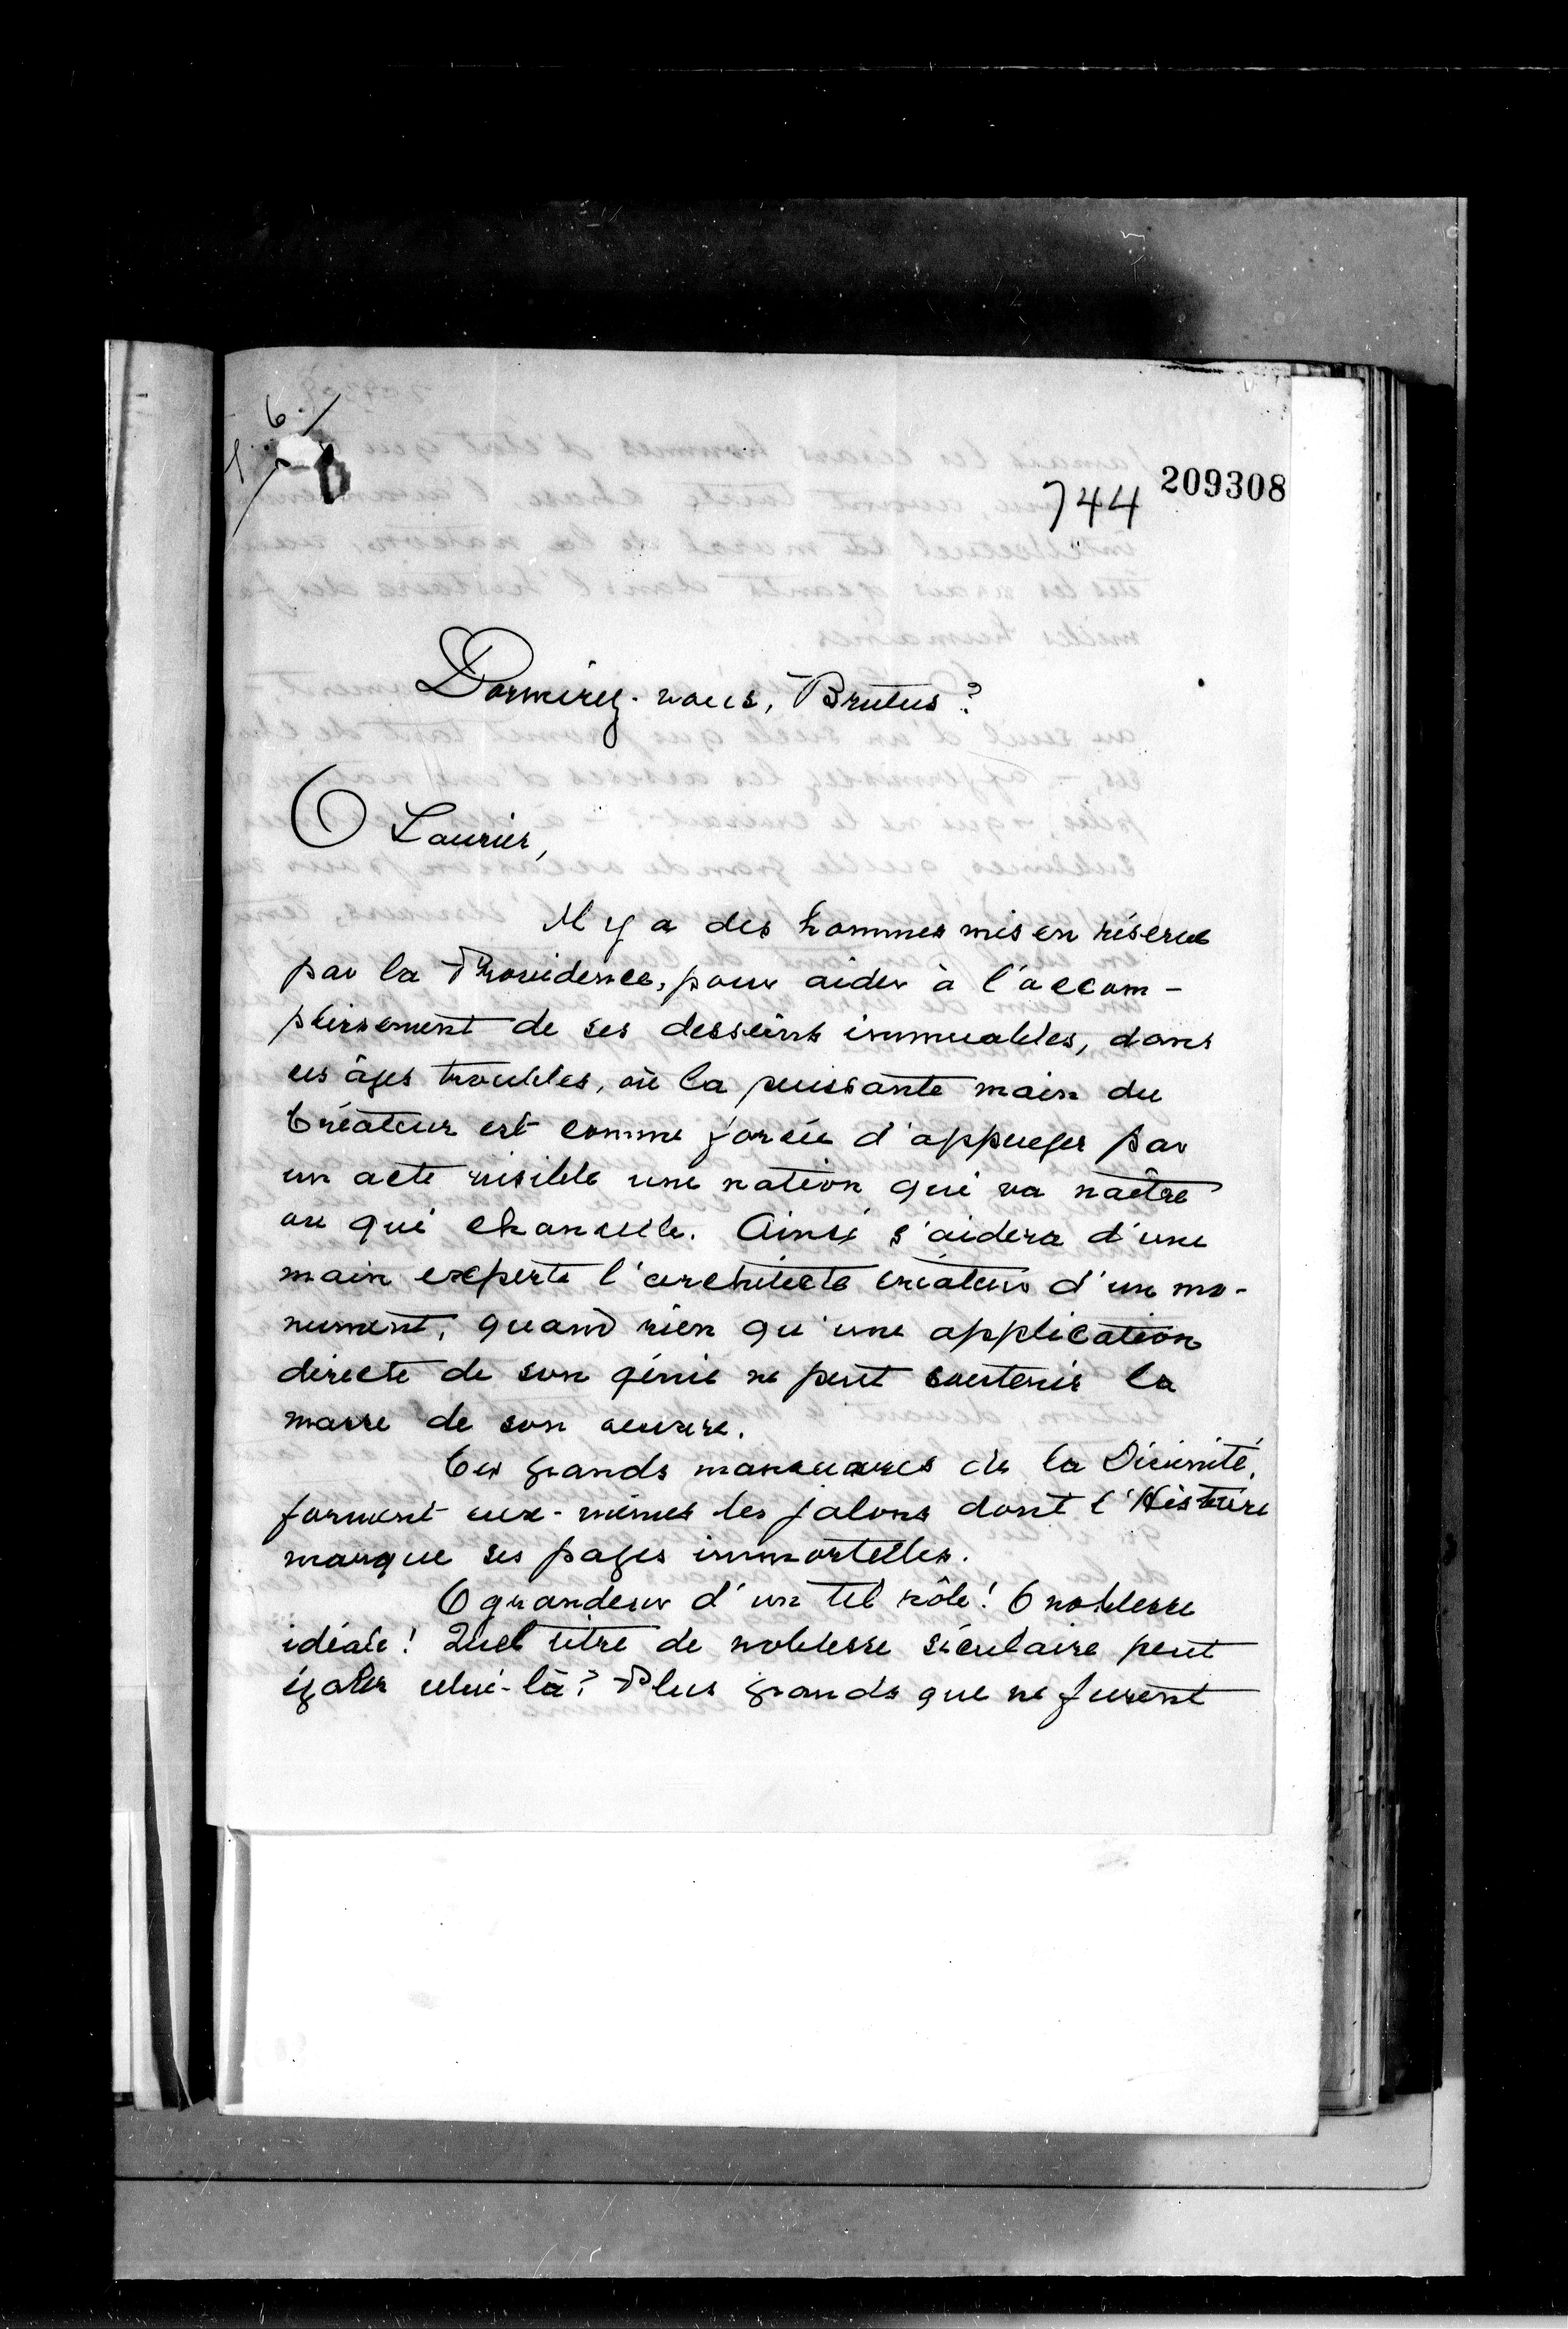 6.
209308
744
Dormirez-vous, Brutus?
O Laurier,
Il y a des hommes mis en réserve
par la Providence, pour aider à l'accom-
plissement de ses desseins immuables, dans
ces âges troubles, où la puissante main du
Créateur est comme forcée d'appuyer par
un acte visible une nation qui va naître
ou qui chancelle. Ainsi s'aidera d'une
main experte l'architecte créateur d'un mo-
nument, quand rien qu'une application
directe de son génie ne peut soutenir la
masse de son oeuvre.
Ces grands manoeuvres de la Divinité,
forment eux-mêmes les jalons dont l'Histoire
marque ses pages immortelles.
O grandeur d'un tel rôle! O noblesse
idéale! Quel titre de noblesse séculaire peut
égaler celui-là? Plus grands que ne furent